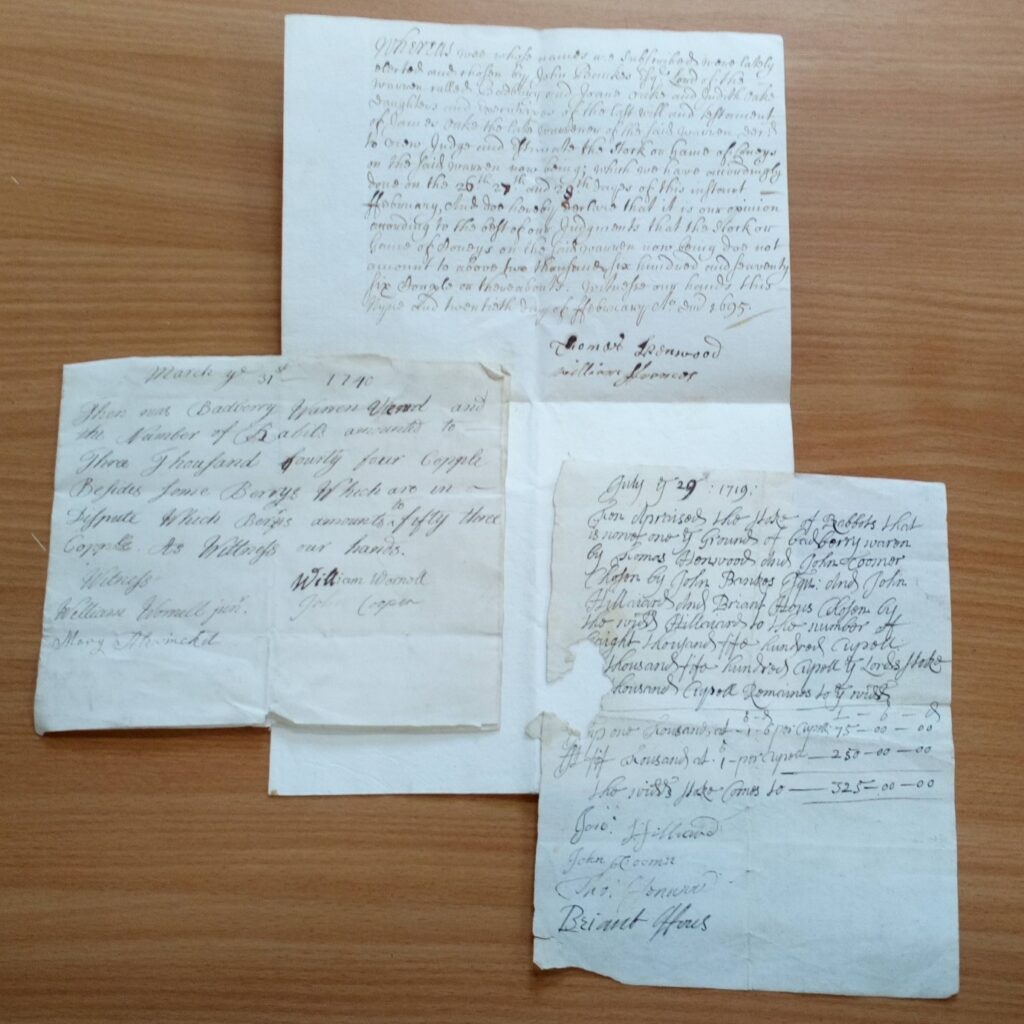 Whereas wee whose names are Subscribed were lately
elected and chosen by John Banckes Esqr Lord of the
Warren called Badbury and Joane Oake and Judith Oake
daughters and executrixes of the last will and testament
of James Oake the late warrener of the said warren decd
to view Judge and Estimate the Stock or Game of Coneys
on the said warren now being; which we have accordingly
done on the 26th 27th and 28th dayes of this instant
ffebruary, And doe hereby declare that it is our opinion
according to the best of our Judgments that the Stock or
Game of Coneys on the said warren now being does not
amount to above two thousand six hundred and seaventy
six Couple or thereabouts. Witnesse our hands this
Nyne and twentieth day of ffebruary Ao. Dni 1695.
Thomas Henwood
William Frances
March ye 31st 1740
Then was Badberry Warren Viewd and
the Number of Rabits amounted to
Three Thousand fourty four Copple
Besides some Berrys Which are in
Dispute Which Berrys amounts to fifty three
Copple. As Wittness our hands.
Witness
William Wornell junr.
Mary
William Wornell
John Cooper
July ye 29th: 1719:
Then Apraised the Stake of Rabbots that
is now one ye Ground of badberry waren
by Thomas Henwood and John Toomer
Chosen by John Bankes Esqr: and John
Hilliard and Briant Hous Chosen by
the widd Hilliard to the number off
Eaight thousand fife hundred Cupell
thousand fife hundred Cupell ye Lords Stake
thousand Cupell Remaines to ye widd
s - d L - s - d
one thousand at - 1 - 6 per Cupell 75 - 00 - 00
thousand at 1 - per Cupell - 250 - 00 - 00
the widds Stake Comes to - 325 - 00 - 00
Hilliard
John Toomer
Tho: Henward
Briant Hous